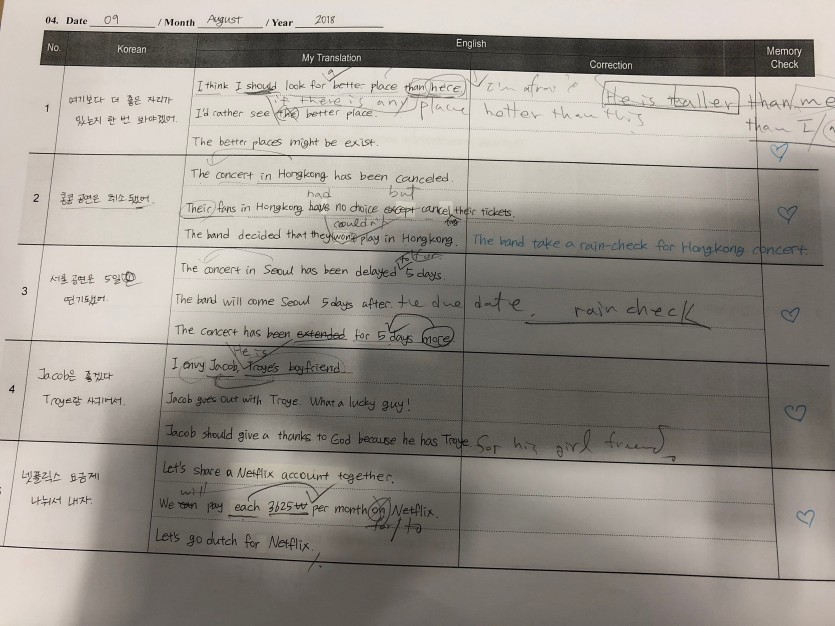 04. Date 09 / Month August / Year 2018
No. Korean English Memory Check
My Translation Correction
1
여기보다 더 좋은 자리가
있는지 한 번 봐야겠어.
I think I should look for a better place than here.
I'm afraid
He is taller than me
than I
if there is any place better than this
I'd rather see the better place.
The better places might be exist.
2
홍콩 공연은 취소됐어.
The concert in Hongkong has been canceled.
had but
Their fans in Hongkong have no choice except cancel their tickets.
couldn't
The band decided that they won't play in Hongkong. The band take a rain-check for Hongkong concert.
3
서울 공연은 5일
연기됐어.
The concert in Seoul has been delayed 5 days.
The band will come Seoul 5 days after the due date.
rain check
The concert has been extended for 5 days more
4
Jacob은 좋겠다
Troye랑 사귀어서.
He is
I envy Jacob, Troye's boyfriend.
Jacob goes out with Troye. What a lucky guy!
Jacob should give a thanks to God because he has Troye. for his girl friend.
넷플릭스 요금제
나눠서 내자.
Let's share a Netflix account together.
will
We can pay each 3625₩ per month on Netflix.
for/to
Let's go dutch for Netflix.